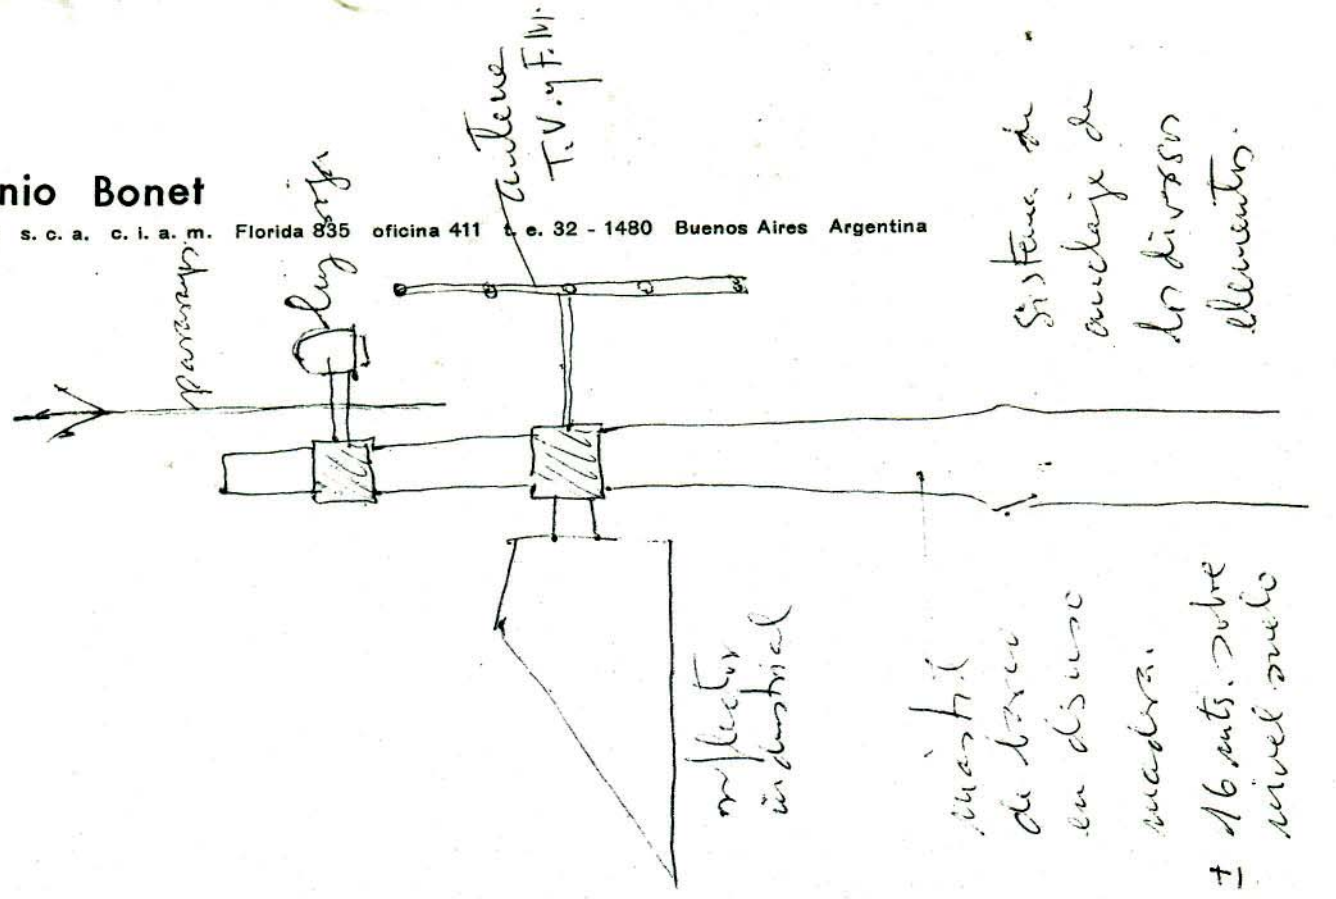 nio Bonet
s. c. a. c. i. a. m. Florida 835 oficina 411 t. e. 32 - 1480 Buenos Aires Argentina
pararrayos
luz roja
antena
T.V. y F.M.
sistema de
anclaje de
los diversos
elementos.
reflector
industrial
mastil
de barco
en desuso
madera.
± 16 mts. sobre
nivel suelo